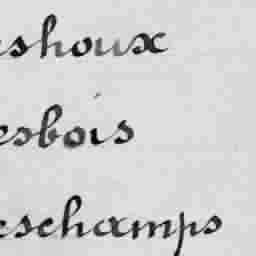 eshoux
esbois
eschamps